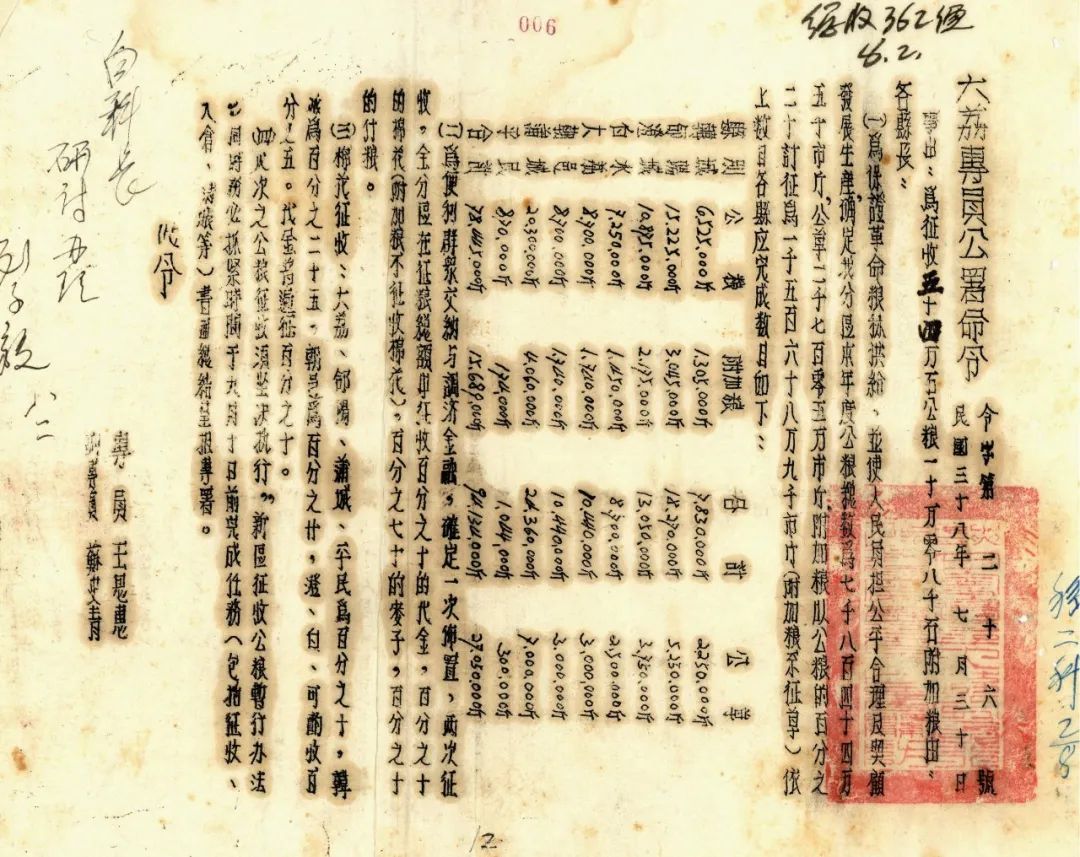 006
六荔專員公署命令
令字第二十六號
民國三十八年七月三十日
事由：爲征收五十四万石公粮一十万零八千石附加粮由：
各縣長：
㈠爲保證革命粮秣供給、並使人民負担公平合理及照顧
發展生產，確定我分區本年度公粮總數爲七千八百四十四万
五千市斤，公草二千七百零五万市斤，附加粮以公粮的百分之
二十訂征爲一千五百六十八万九千市斤（附加粮不征草）依
上数目各縣应完成数目如下：
縣別 公粮 附加粮 合計 公草
6.525.000斤 1.305.000斤 7.830.000斤 2250.000斤
15.225.000斤 3.045.000斤 18.270.000斤 5.250.000斤
10.875.000斤 2.175.000斤 13.050.000斤 3.750.000斤
白水 7.250.000斤 1.450.000斤 8.700.000斤 2.500.000斤
8.700.000斤 1.740.000斤 10.440.000斤 3.000.000斤
8.700.000斤 1.740.000斤 10.440.000斤 3.000.000斤
20.300.000斤 4.060.000斤 24.360.000斤 7.000.000斤
平民 870.000斤 174.000斤 1.044.000斤 300.000斤
合計 78.445.000斤 15.689.000斤 94.134.000斤 27.050.000斤
㈡爲便利群衆交納与調济金融，確定一次佈置，两次征
收，全分區在征粮總額中征收百分之十的代金，百分之十
的棉花（附加粮不征收棉花），百分之七十的麥子，百分之十
的什粮。
㈢棉花征收：大荔、郃陽、蒲城、平民爲百分之十，韓
城爲百分之二十五，朝邑爲百分之廿，澄、白、可酌收百
分之五。代金普遍征百分之十。
㈣此次之公粮征收須坚决执行“新區征收公粮暫行办法”
同時務必抓緊時間于九月十日前完成任務（包括征收、
入倉、清賬等）並 總結呈报專署。
此令
專員 王恩惠
副專員 蘇史青
白科長
研討
八、二
12